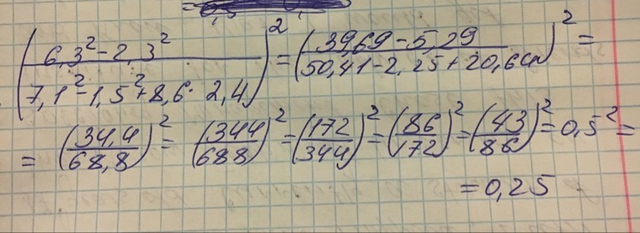 (6,3²-2,3² / 7,1²-1,5²+8,6·2,4)² = (39,69-5,29 / 50,41-2,25+20,64)² =
= (34,4 / 68,8)² = (344 / 688)² = (172 / 344)² = (86 / 172)² = (43 / 86)² = 0,5² =
= 0,25